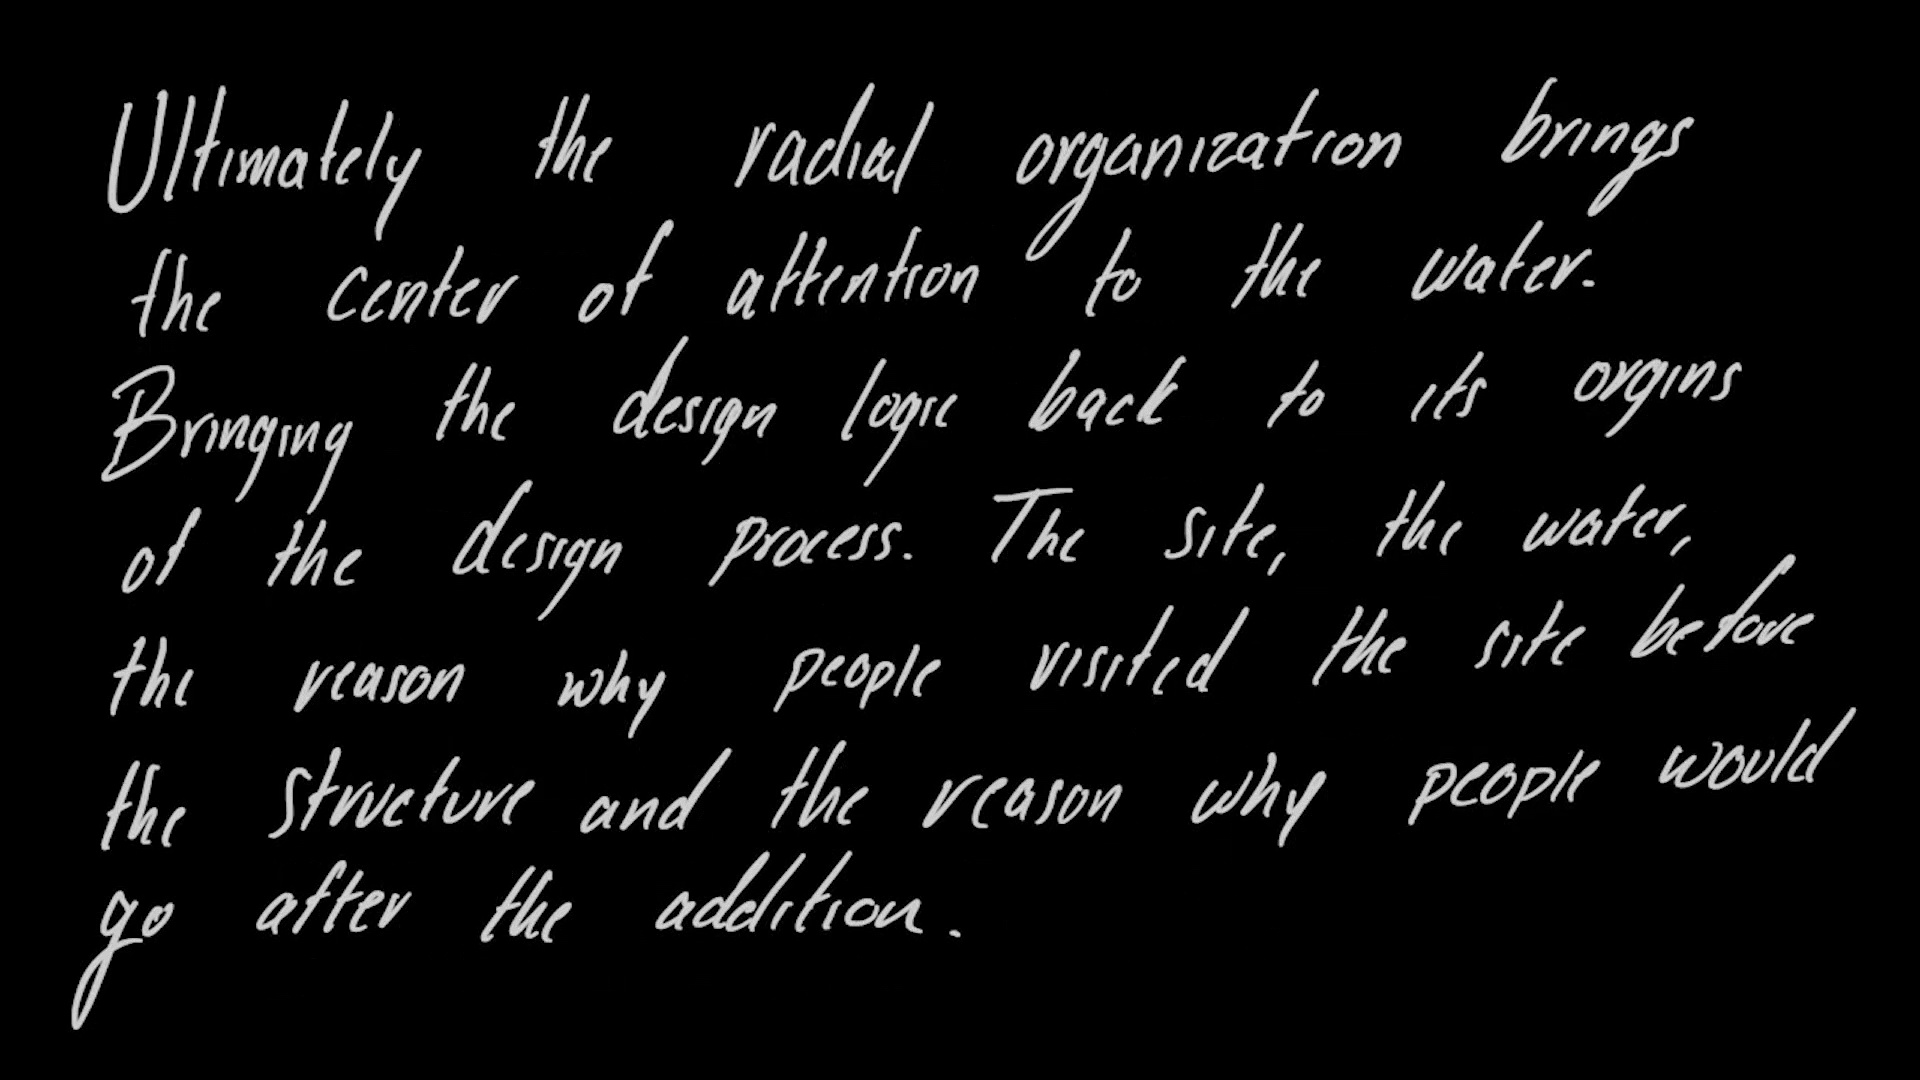 Ultimately the radial organization brings
the center of attention to the water.
Bringing the design logic back to its orgins
of the design process. The site, the water,
the reason why people visited the site before
the structure and the reason why people would
go after the addition.